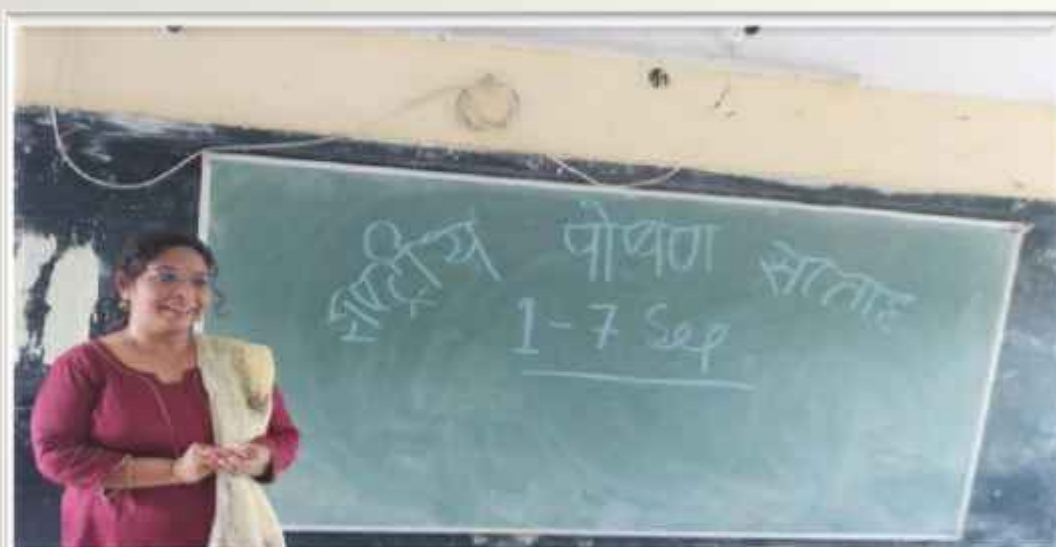 राष्ट्रीय पोषण सप्ताह
1-7 Sep